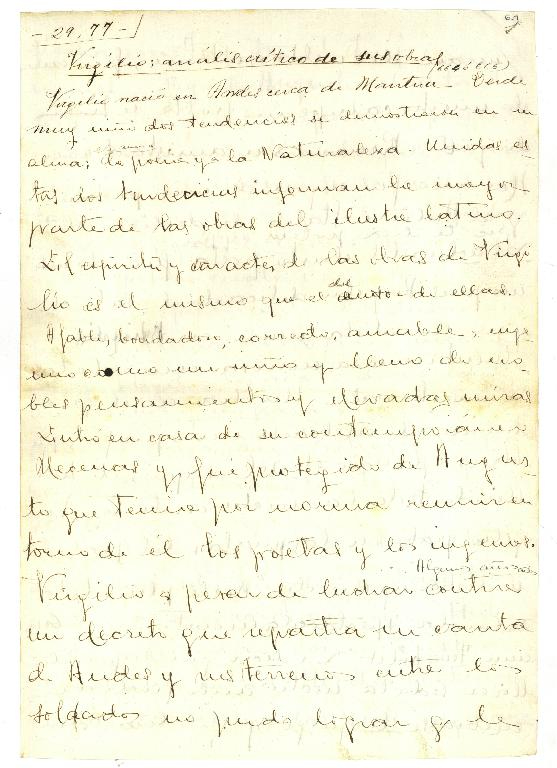 - 29, 77 -
Virgilio; análisis crítico de sus obras
Virgilio nació en Andes cerca de Mantua - Desde
muy niño dos tendencias se demostraron en su
alma; la poesía y a la Naturaleza. Unidas es-
tas dos tendencias informan la mayor
parte de las obras del ilustre latino.
El espíritu y caracter de las obras de Virgi
lio es el mismo que el del autor de ellas.
Afable, bondadoso, correcto, amable, inge
nuo como un niño y lleno de no-
bles pensamientos y elevadas miras
Entró en casa de su contemporáneo
Mecenas y fué protegido de Augus-
to que tenia por norma reunir en
torno de él los poetas y los ingenios.
Algunos años
Virgilio a pesar de luchar contra
un decreto que repartia su
de Andes y sus terrenos entre los
soldados no pudo lograr q le